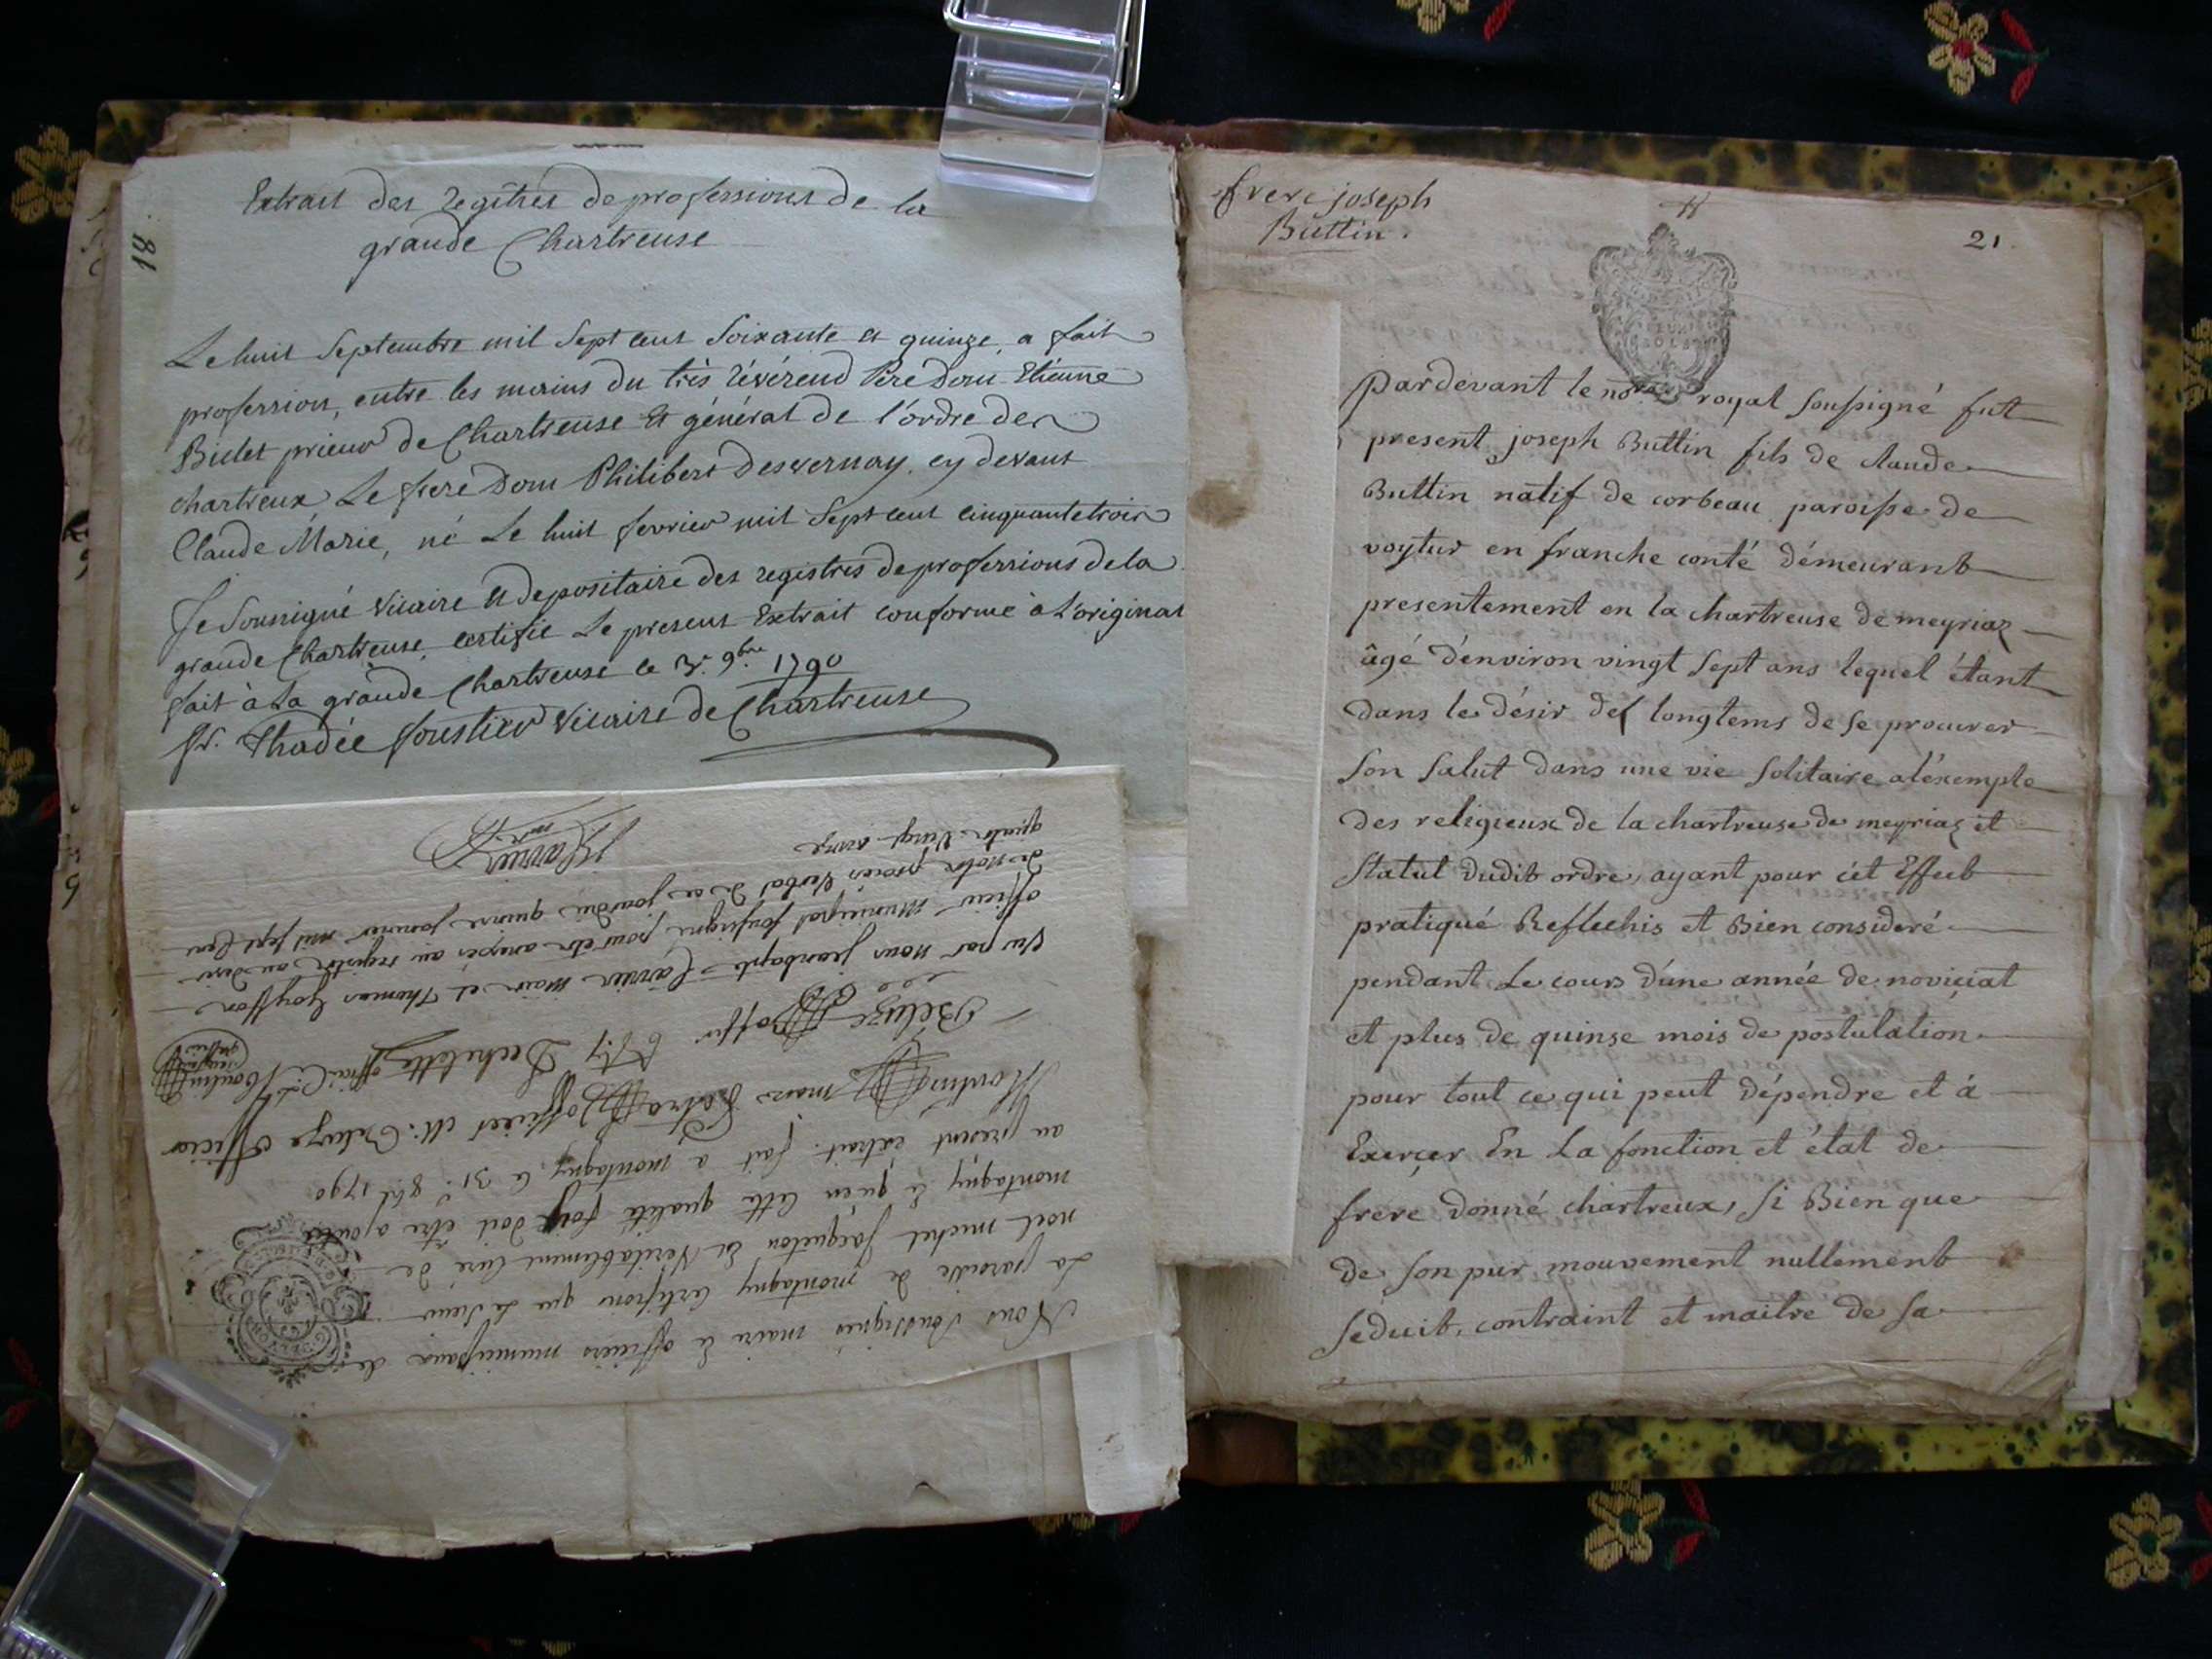 18
Extrait des regîtres de professions de la
grande Chartreuse
Le huit Septembre mil Sept cent Soixante et quinze, a fait
profession, entre les mains du très révérend Père Dom Etienne
Biclet prieur de Chartreuse et général de l'ordre des
chartreux Le frere Dom Philibert Desvernay, cy devant
Claude Marie, né Le huit fevrier mil Sept cent cinquante trois
Je Soussigné Vicaire et depositaire des registres de professions de la
grande Chartreuse, certifie Le present Extrait conforme à L'original
fait à La grande Chartreuse le 3e. 9bre 1790
fr. Thadée foustier Vicaire de Chartreuse
Nous Soussignés maire & officiers municipaux de
La paroisse de montagny certifions que Le Sieur
noel michel Jacqueton Est Veritablement Curé de
montagny & qu'en cette qualité foy doit être ajoutée
au present extrait. fait a montagny le 31e 8bre 1790
maire officier M: Beluze officier
Dechelette
Beluze
Vu par nous jeanbapte Carrier maire et Thomas
officier Municipal soussigné pour etre anexés au registre au desir
de notre procès Verbal de ce jourdui quinze janvier mil sept Cent
quatre Vingt onze
Carrier
frere joseph
Buttin.
21.
Pardevant le nore royal soussigné fut
present joseph Buttin fils de claude
Buttin natif de corbeau paroisse de
voytur en franche conté démeurant
presentement en la chartreuse de meyriaz
âgé d'environ vingt sept ans lequel étant
dans le désir des longtems de se procurer
son salut dans une vie solitaire a l'éxemple
des religieux de la chartreuse de meyriaz et
statut dudit ordre, ayant pour cét Effect
pratiqué Reflechis et Bien consideré
pendant Le cours d'une année de noviciat
et plus de quinse mois de postulation
pour tout ce qui peut dépendre et à
Exerçer En La fonction et état de
frere donné chartreux, si Bien que
de son pur mouvement nullement
séduit, contraint et maitre de sa